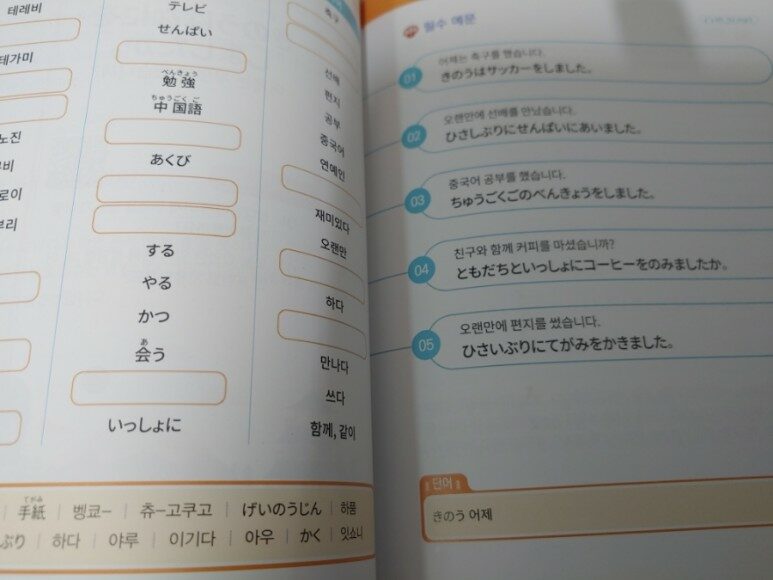 테레비
테가미
노진
로이
テレビ
せんぱい
べんきょう
勉強
ちゅうごくご
中国語
あくび
する
やる
かつ
あ
会う
いっしょに
축구
선배
편지
공부
중국어
연예인
재미있다
오랜만
하다
만나다
쓰다
함께, 같이
てがみ
手紙 | 벵쿄ー | 츄ー고쿠고 | げいのうじん | 하품
부리 | 하다 | 야루 | 이기다 | 아우 | かく | 잇쇼니
필수 예문
01
어제는 축구를 했습니다.
きのうはサッカーをしました。
02
오랜만에 선배를 만났습니다.
ひさしぶりにせんぱいにあいました。
03
중국어 공부를 했습니다.
ちゅうごくごのべんきょうをしました。
04
친구와 함께 커피를 마셨습니까?
ともだちといっしょにコーヒーをのみましたか。
05
오랜만에 편지를 썼습니다.
ひさいぶりにてがみをかきました。
단어
きのう 어제